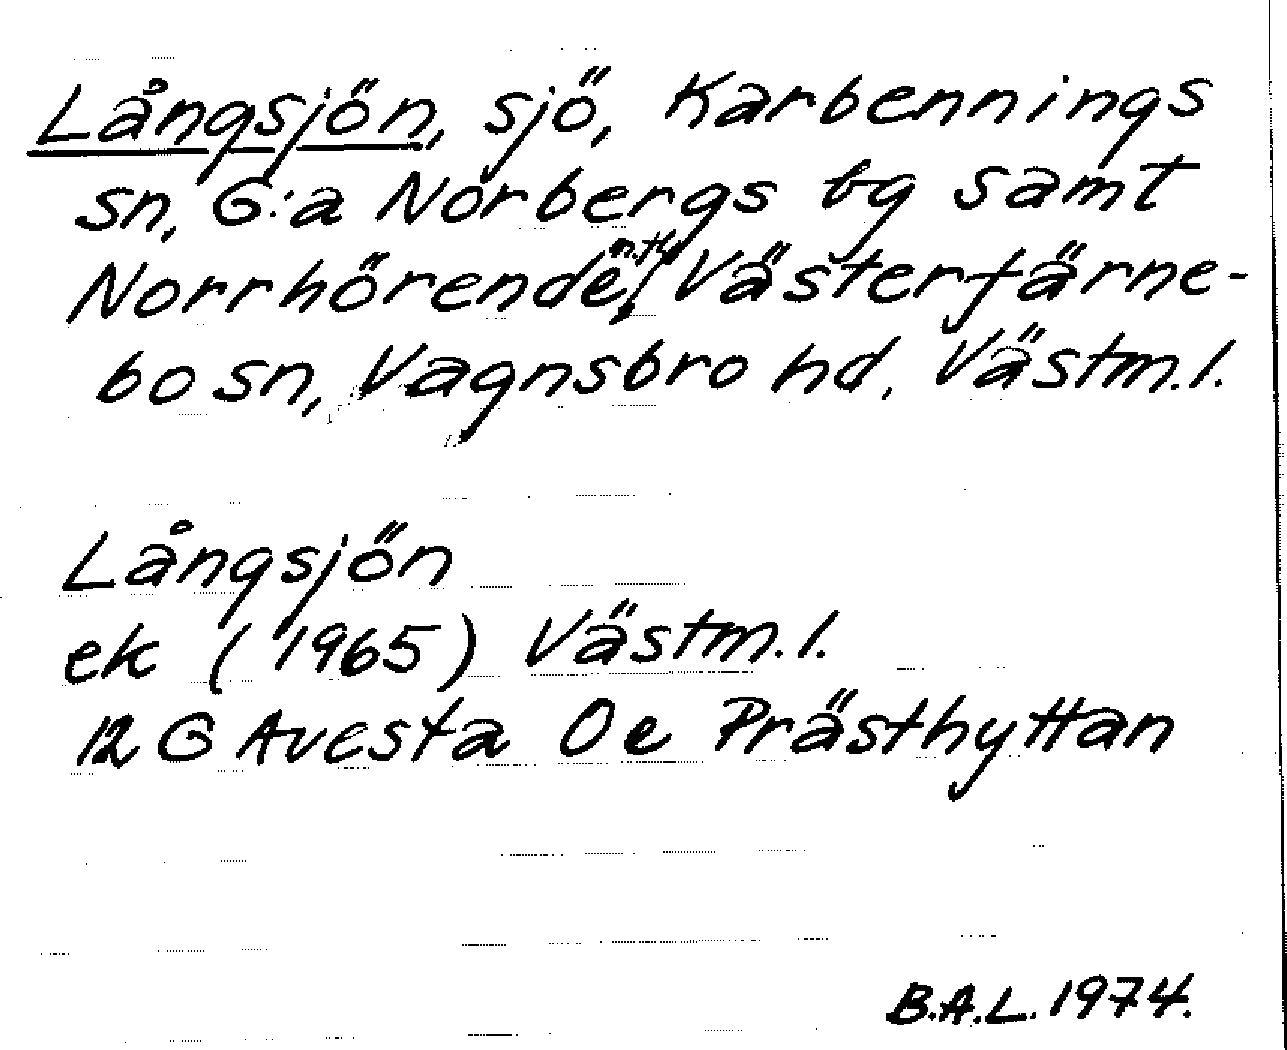 Långsjön, sjö, Karbennings
sn, G:a Norbergs bg samt
Norrhörende, Västerfärne-
bo sn, Vagnsbro hd, Västm.l.
Långsjön
ek (1965) Västm.l.
12 G Avesta 0e Prästhyttan
B.A.L. 1974.